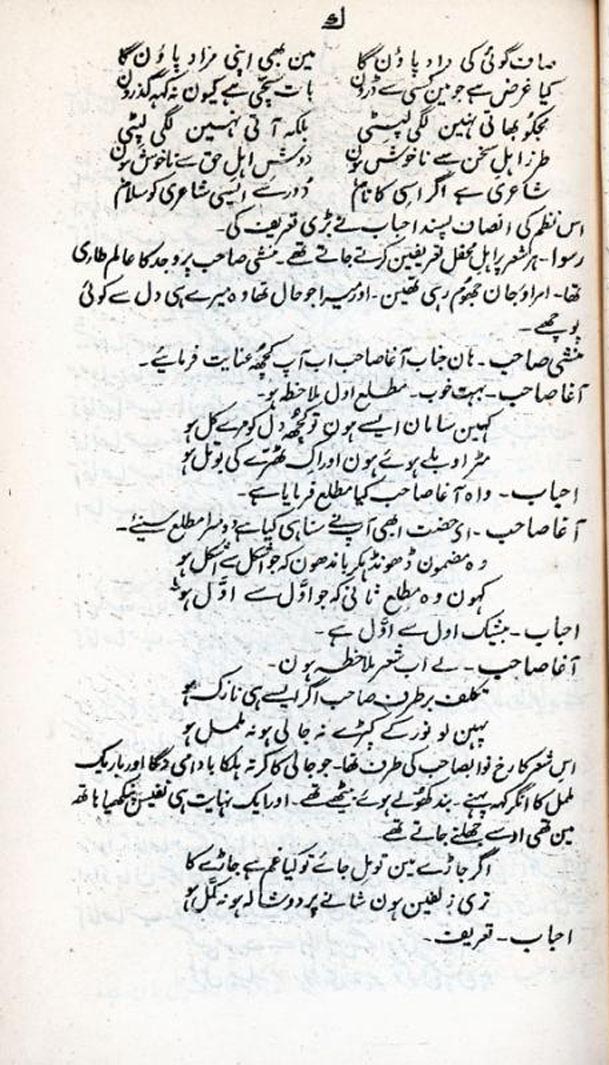 ک
صاف گوئی کی داد پاؤں گا مین بھی اپنی مراد پاؤں گا
کیا غرض ہے جو مین کسی سے ڈرون بات سچی ہے کیون نہ کہہ گذرون
مجکو بھاتی نہین لگی لپٹی بلکہ آتی نہین لگی لپٹی
طرز اہل سخن سے ناخوش ہون روش اہل حق سے ناخوش ہون
شاعری ہے اگر اسی کا نام دور سے ایسی شاعری کو سلام
اس نظم کی انصاف پسند احباب نے بڑی تعریف کی۔
رسوا۔ ہر شعر پر اہل محفل تعریفین کرتے جاتے تھے۔ منشی صاحب پر وجد کا عالم طاری
تھا۔ امراو جان جھوم رہی تھین۔ اور میرا جو حال تھا وہ میرے ہی دل سے کوئی
پوچھے۔
منشی صاحب۔ ہان جناب آغا صاحب اب آپ کچھ عنایت فرمائیے۔
آغا صاحب۔ بہت خوب۔ مطلع اول ملاحظہ ہو۔
کہین سامان ایسے ہون تو کچھ دل کو مرے کل ہو
مٹر اوبلے ہوئے ہون اور اک ٹھرّے کی بوتل ہو
احباب۔ واہ آغا صاحب کیا مطلع فرمایا ہے۔
آغا صاحب۔ اے حضت ابھی آپ نے سنا ہی کیا ہے دوسرا مطلع سنیے۔
وہ مضمون ڈھونڈھکر باندھون کہ جو اشکل سے اشکل ہو
کہون وہ مطلع ثانی کہ جو اوّل سے اوّل ہو
احباب۔ بیشک اول سے اوّل ہے۔
آغا صاحب۔ لے اب شعر ملاحظہ ہون۔
تکلف برطرف صاحب اگر ایسے ہی نازک ہو
پہن لو نور کے کپڑے نہ جالی ہو نہ ململ ہو
اس شعر کا رخ نوابصاحب کی طرف تھا۔ جو جالی کا کرتہ ہلکا بادامی رنگا اور باریک
ململ کا انگرکھہ پہنے۔ بند کھولے ہوئے بیٹھے تھے۔ اور ایک نہایت ہی نفیس پنکھیا ہاتھہ
مین تھی اوسے جھلتے جاتے تھے
اگر جاڑے مین تو مل جائے تو کیا غم ہے جاڑے کا
تری زلفین ہون شانے پر دوشالہ ہو نہ کمّل ہو
احباب۔ تعریف۔